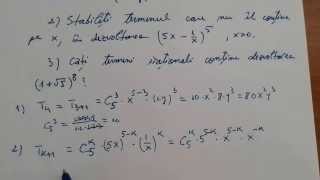 2) Stabiliți termenul care nu îl conține
pe x, în dezvoltarea (5x - 1/x)^5, x≠0.
3) Câți termeni iraționali conține dezvoltarea
(1+√5)^8?
1) T_4 = T_{3+1} = C_5^3 · x^{5-3} · (2y)^3 = 10·x^2·8·y^3 = 80x^2y^3
C_5^3 = = 10
2) T_{k+1} = C_5^k · (5x)^{5-k} · (1/x)^k = C_5^k · 5^{5-k} · x^{5-k} · x^{-k}